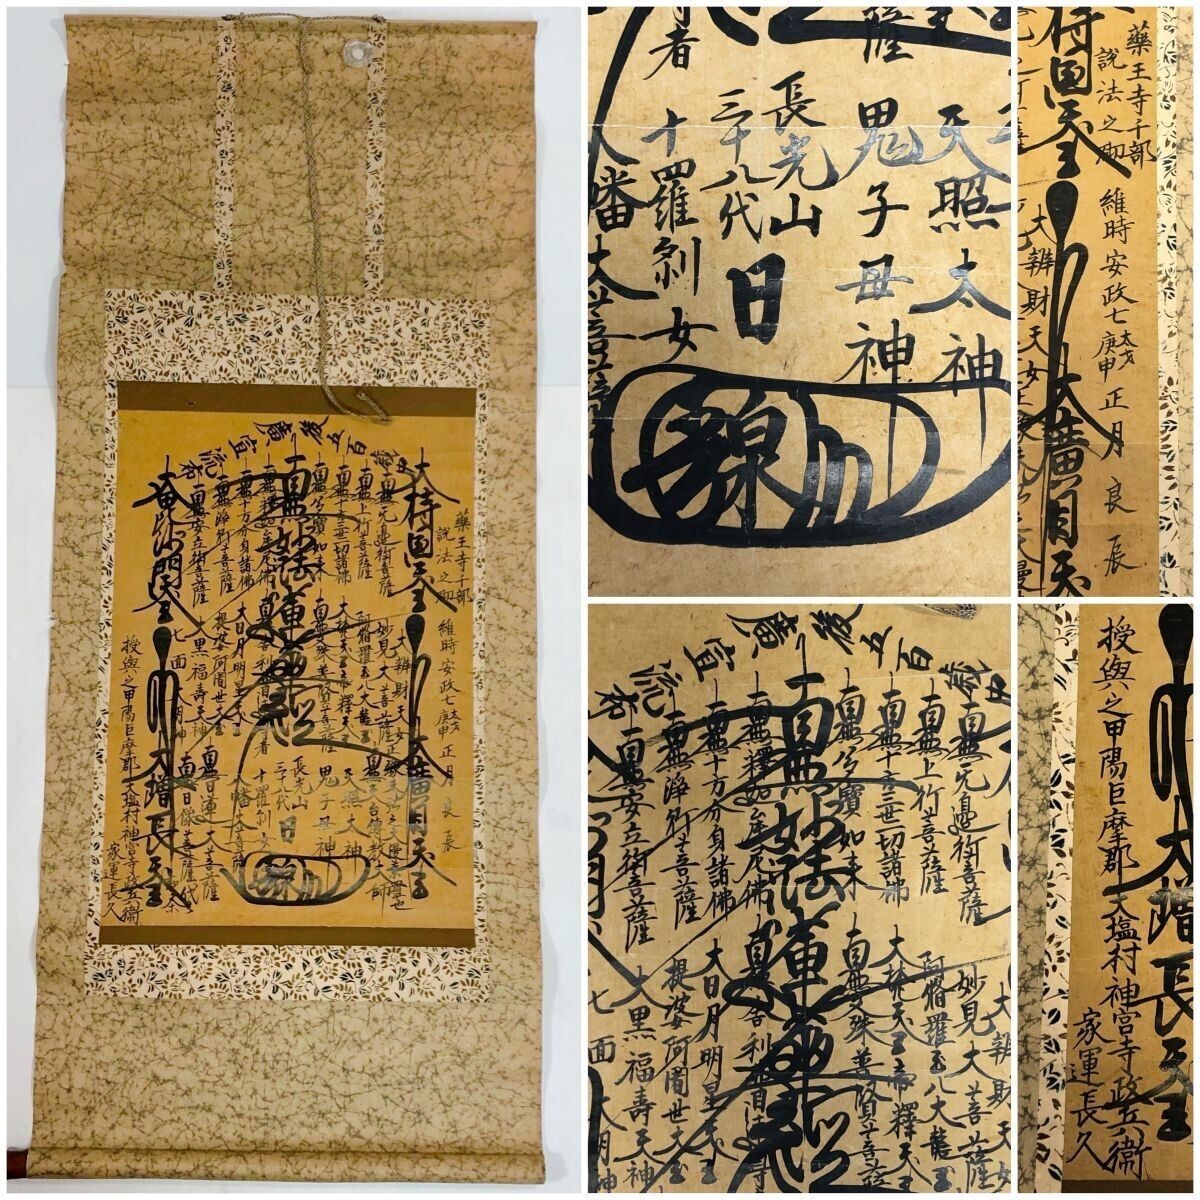 後五百歳中
廣宣流布
大持国天王
南無無邊行菩薩
南無上行菩薩
南無十方三世一切諸佛
南無多寶如来
南無妙法蓮華経
南無釋迦牟尼佛
南無十方分身諸佛
南無浄行菩薩
南無安立行菩薩
大毘沙門天王
大辨財天女
妙見大菩薩
阿脩羅王八大龍王
大梵天王帝釋天王
南無文殊普賢菩薩
南無舎利弗目
大日月明星天王
提婆阿闍世大王
大黒福壽天神
七面大明神
天照太神
鬼子母神
長光山
三十八代
日
十羅刹女
八幡大菩薩
南無日蓮大菩薩
大廣目天王
大増長天王
藥王寺千部
説法之砌
維時安政七太才庚申正月良辰
授與之甲陽巨摩郡大塩村神宮寺政兵衞
家運長久